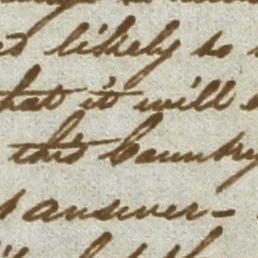 likely to
that it will
this Country
answer -